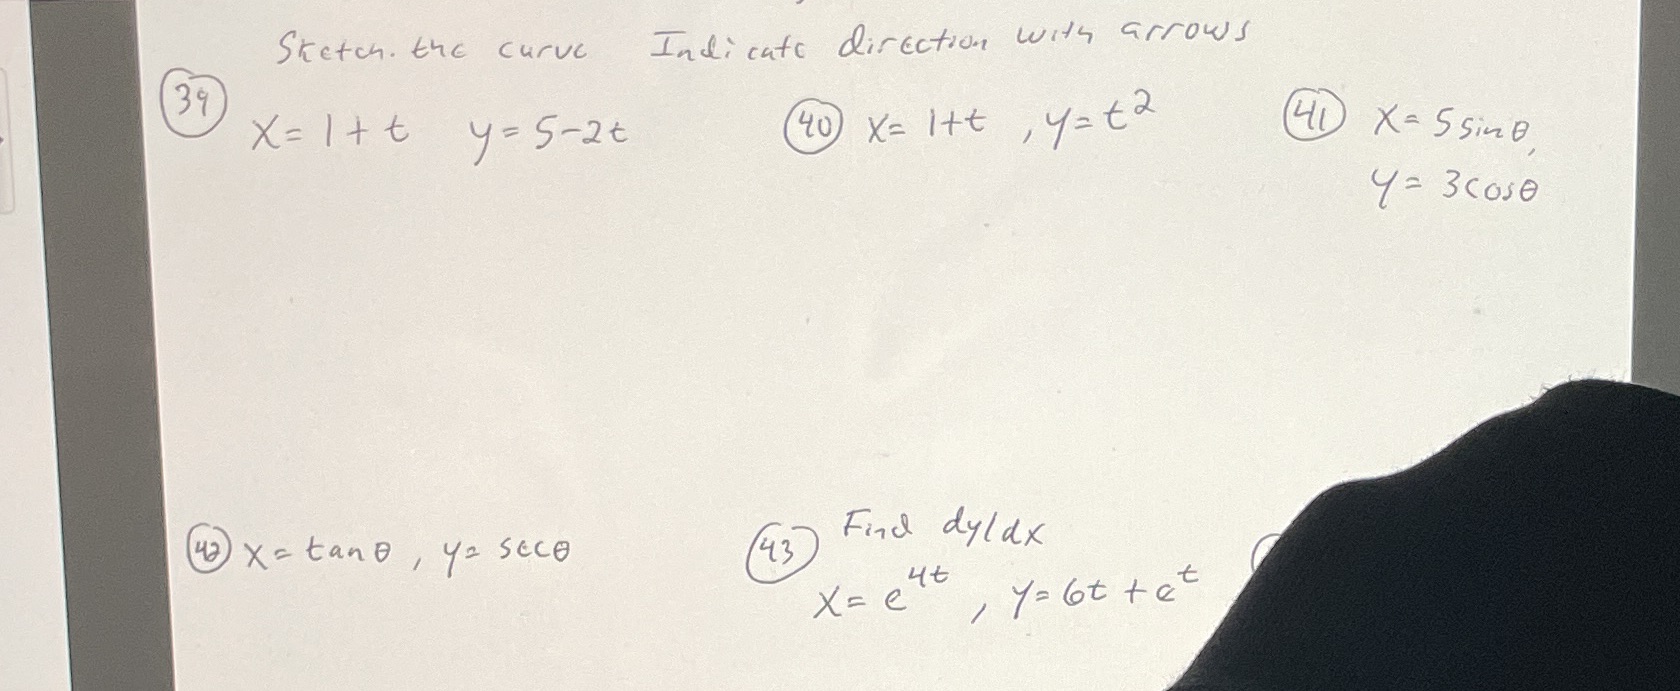 Sketch. the curve Indicate direction with arrows
39 x = 1 + t y = 5 - 2t
40 x = 1+t , y = t²
41 x = 5 sin θ,
y = 3 cos θ
42 x = tan θ , y = sec θ
43 Find dy/dx
x = e^4t , y = 6t + e^t